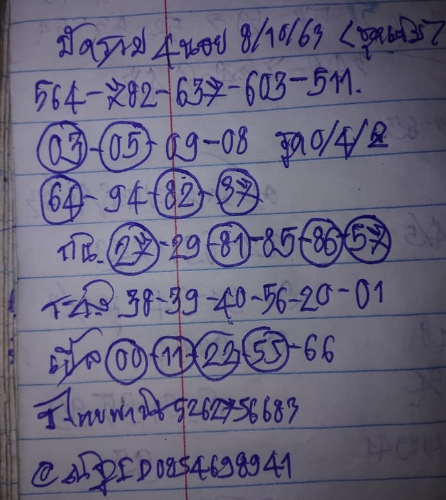 4 หอย 8/10/63
564-782-637-603-511.
03-05-09-08 รูด 0/4/2
64-94-82-37
กน. 27-29-81-85-86-57
38-39-40-56-20-01
เบิ้ล 00-11-22-55-66
ธ.ไทยพานิช 5262756683
ID 0854698941